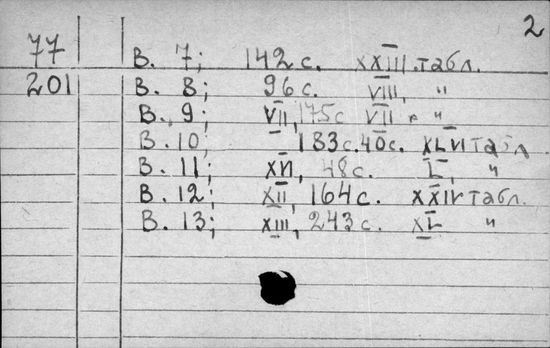 2
77 В. 7; 142 с. XXIII табл.
201 В. 8; 96 с. VIII, "
В. 9; VII, 175 с VII "
В. 10, 183 с. 40 с. XLVI табл
В. 11; XVI, 48 с. L, "
В. 12; XII, 164 с. XXIV табл.
В. 13; XIII, 243 с. XL "